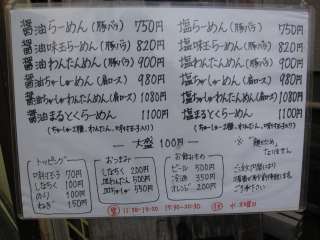 醤油らーめん(豚バラ) 750円
醤油味玉らーめん(豚バラ) 820円
醤油わんたんめん(豚バラ) 900円
醤油ちゃーしゅーめん(肩ロース) 980円
醤油ちゃーしゅーわんたんめん(肩ロース) 1080円
醤油まるとくらーめん 1100円
(ちゃーしゅー2種、わんたん、味付玉子入り)
塩らーめん(豚バラ) 750円
塩味玉らーめん(豚バラ) 820円
塩わんたんめん(豚バラ) 900円
塩ちゃーしゅーめん(肩ロース) 980円
塩ちゃーしゅーわんたんめん(肩ロース) 1080円
塩まるとくらーめん 1100円
(ちゃーしゅー2種、わんたん、味付玉子入り)
大盛 100円
トッピング
味付玉子 70円
しなちく 100円
のり 100円
ねぎ 150円
おつまみ
しなちく 200円
皿わんたん 400円
500円
お飲みもの
ビール 500円
冷酒 350円
オレンジ 200円
11:30-14:30 17:30-20:30
水曜日